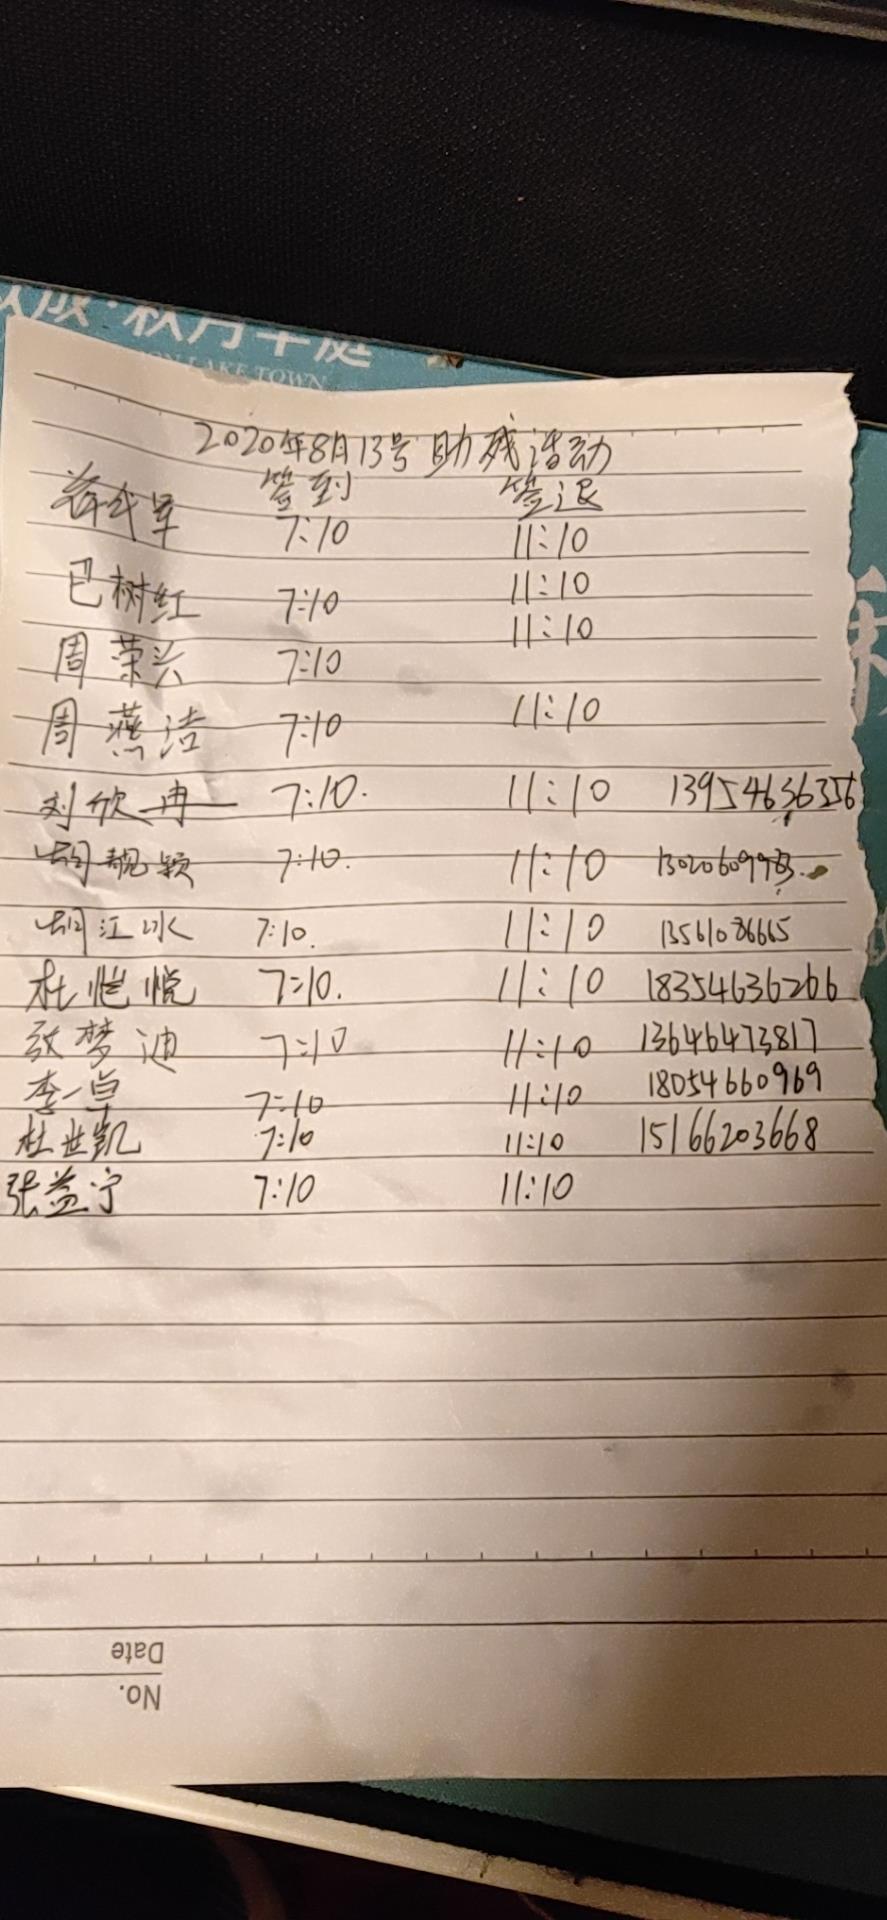 秋月华庭
LAKE TOWN
2020年8月13号 助残活动
签到 签退
7:10 11:10
巴树红 7:10 11:10
周荣兴 7:10 11:10
周燕洁 7:10 11:10
刘欣冉 7:10. 11:10 13954636356
胡靓颖 7:10. 11:10
胡江冰 7:10. 11:10 13561086665
杜恺悦 7:10. 11:10 18354636266
张梦迪 7:10 11:10 13646473817
李一卓 7:10 11:10 18054660969
杜世凯 7:10 11:10 15166203668
张益宁 7:10 11:10
Date
No.